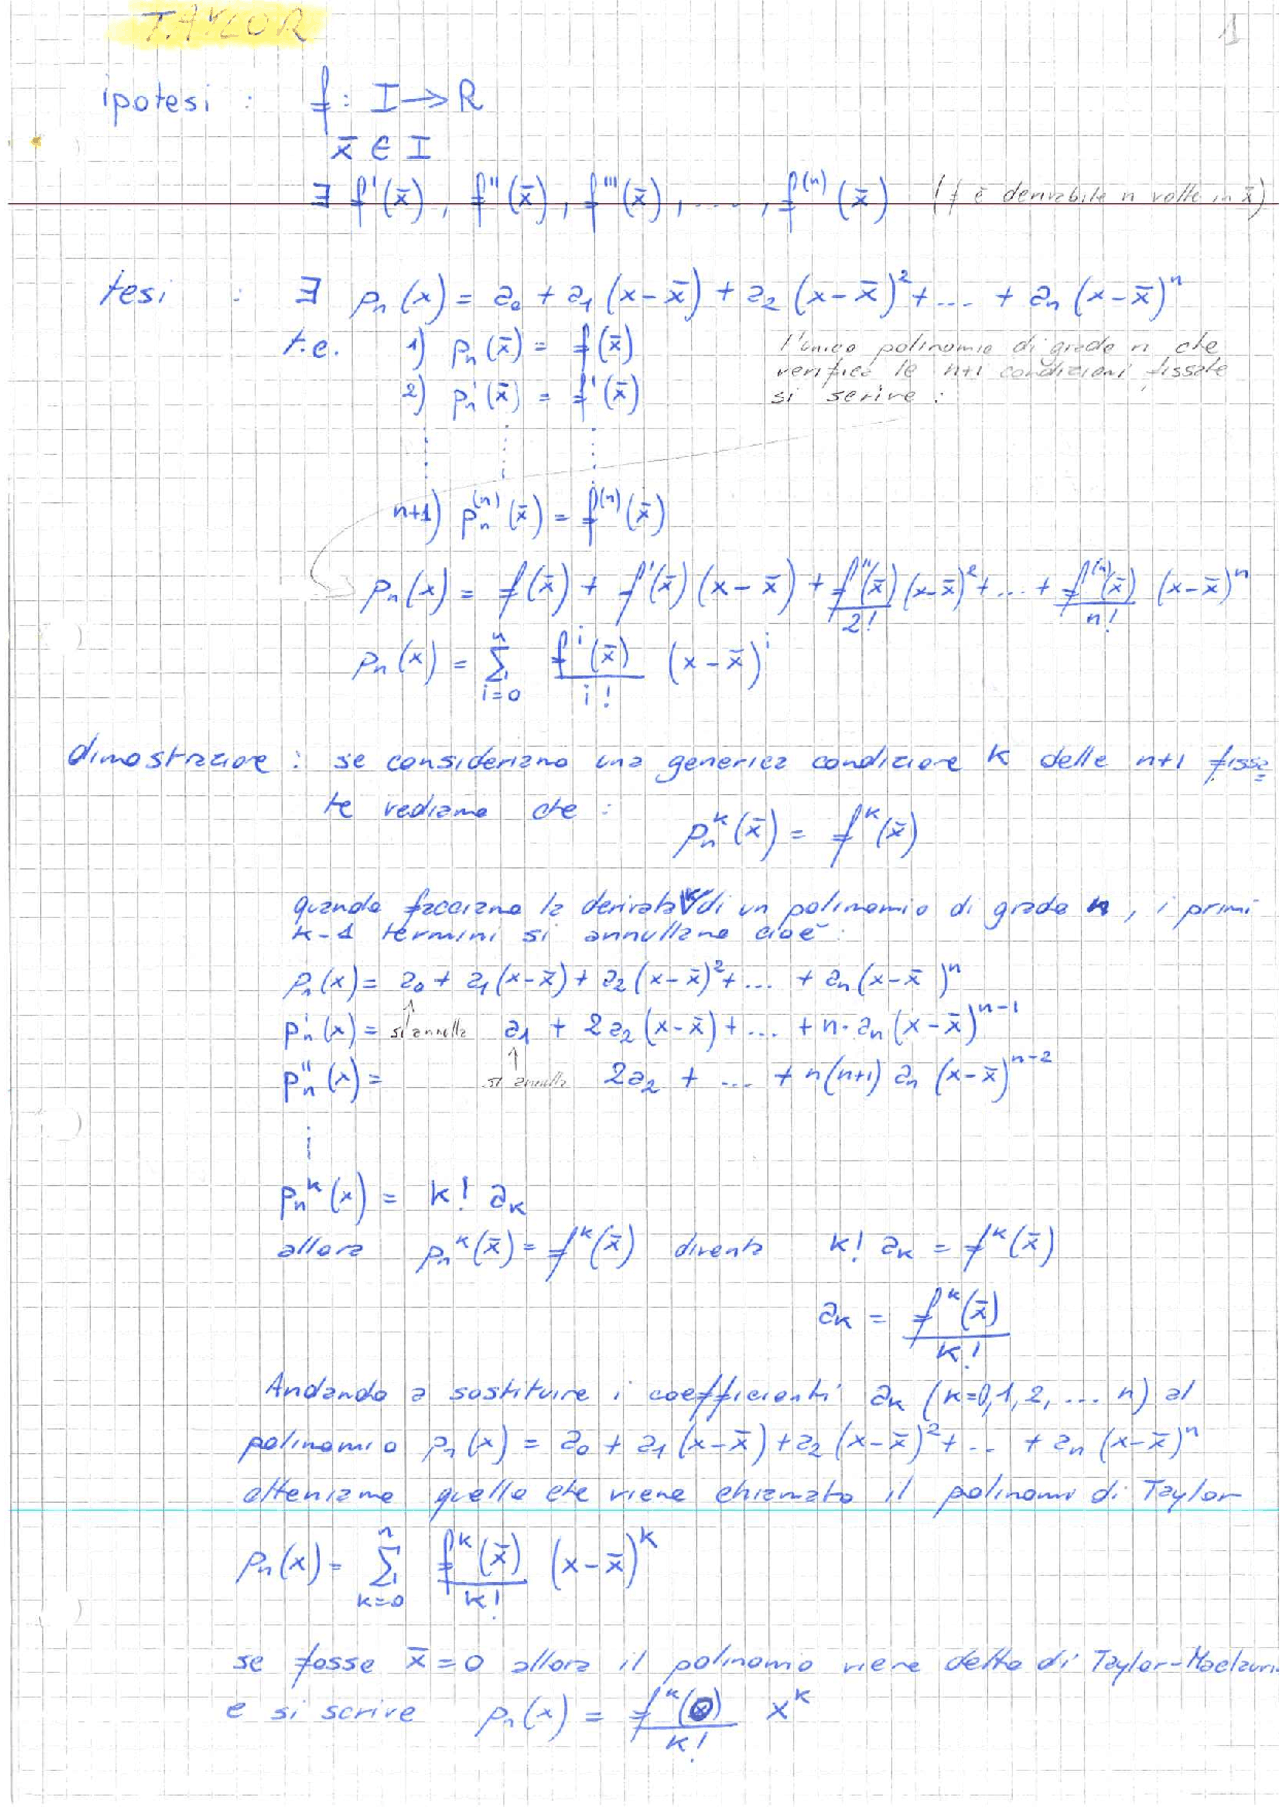 TAYLOR
1
ipotesi : f : I → R
x̄ ∈ I
∃ f'(x̄), f''(x̄), f'''(x̄), ...., f⁽ⁿ⁾(x̄) (f è derivabile n volte in x̄)
tesi : ∃ pₙ(x) = a₀ + a₁(x-x̄) + a₂(x-x̄)² + ... + aₙ(x-x̄)ⁿ
t.c. 1) pₙ(x̄) = f(x̄)
2) pₙ'(x̄) = f'(x̄)
l'unico polinomio di grado n che
verifica le n+1 condizioni fissate
si scrive :
n+1) pₙ⁽ⁿ⁾(x̄) = f⁽ⁿ⁾(x̄)
pₙ(x) = f(x̄) + f'(x̄)(x-x̄) + f''(x̄)/2! (x-x̄)² + ... + f⁽ⁿ⁾(x̄)/n! (x-x̄)ⁿ
pₙ(x) = Σ_{i=0}^{n} fⁱ(x̄)/i! (x-x̄)ⁱ
dimostrazione : se consideriamo una generica condizione k delle n+1 fissa
te vediamo che :
pₙᵏ(x̄) = fᵏ(x̄)
quando facciamo la derivata k di un polinomio di grado n, i primi
k-1 termini si annullano cioè :
pₙ(x) = a₀ + a₁(x-x̄) + a₂(x-x̄)² + ... + aₙ(x-x̄)ⁿ
pₙ'(x) = si annulla a₁ + 2a₂(x-x̄) + ... + n·aₙ(x-x̄)ⁿ⁻¹
pₙ''(x) = si annulla 2a₂ + ... + n(n+1) aₙ (x-x̄)ⁿ⁻²
⋮
pₙᵏ(x) = k! aₖ
allora pₙᵏ(x̄) = fᵏ(x̄) diventa k! aₖ = fᵏ(x̄)
aₖ = fᵏ(x̄)/k!
Andando a sostituire i coefficienti aₖ (k=0,1,2,...n) al
polinomio pₙ(x) = a₀ + a₁(x-x̄) + a₂(x-x̄)² + .. + aₙ(x-x̄)ⁿ
otteniamo quello che viene chiamato il polinomi di Taylor
pₙ(x) = Σ_{k=0}^{n} fᵏ(x̄)/k! (x-x̄)ᵏ
se fosse x̄=0 allora il polinomo viene detto di Taylor-Maclaurin
e si scrive pₙ(x) = fᵏ(0)/k! xᵏ